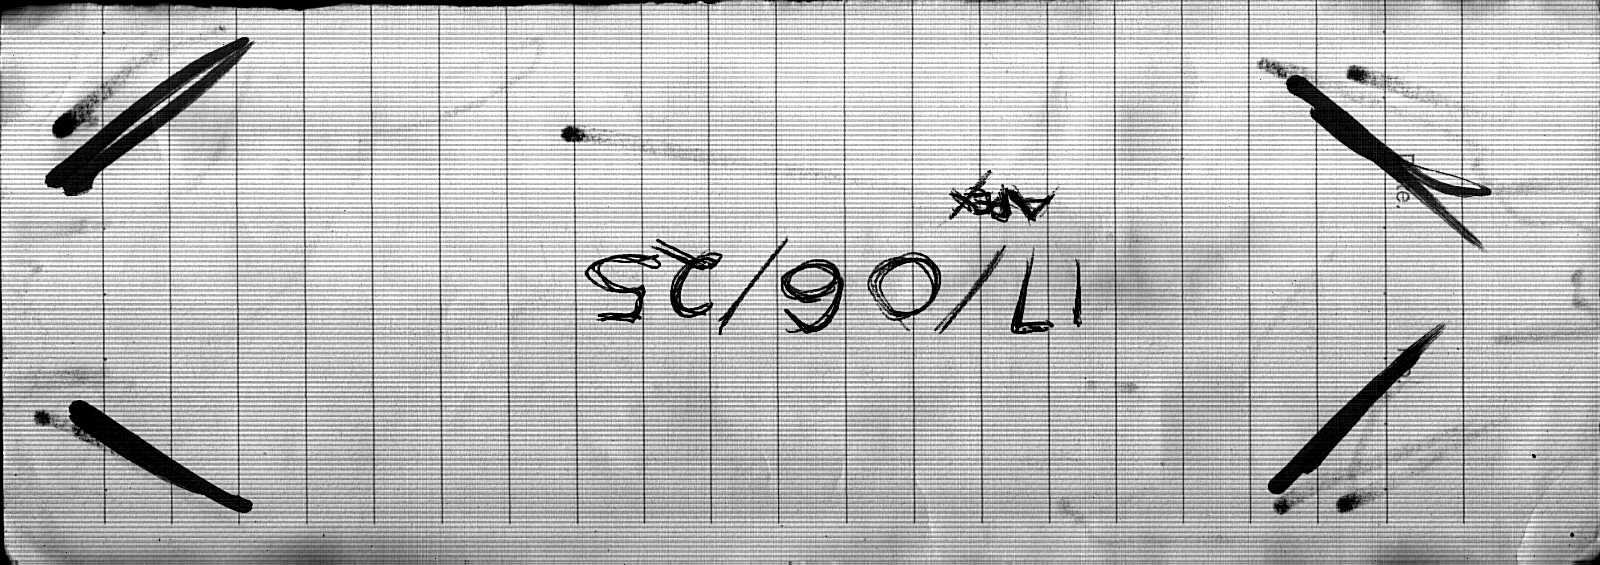 17/06/25
APEX